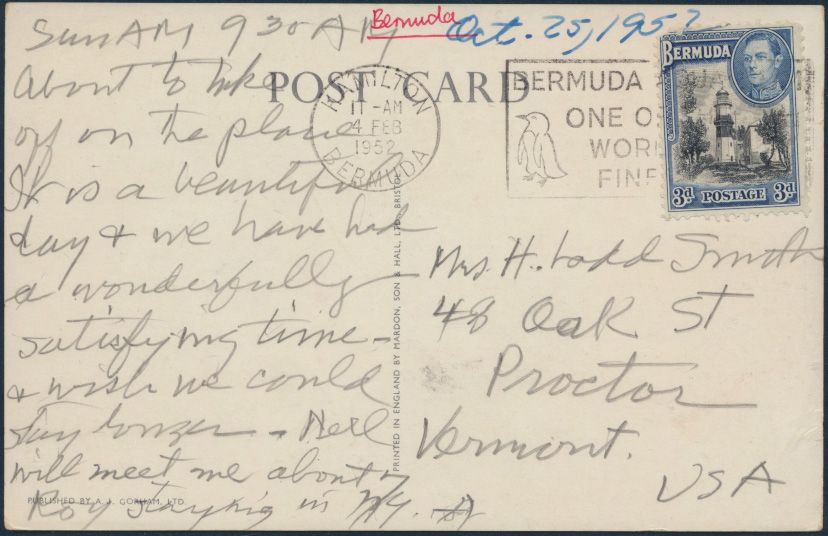 Bermuda
Oct. 25, 195?
Sun AM 930 AM
About to take
off on the plane
It is a beautiful
day & we have had
a wonderfully
satisfying time -
& wish we could
stay longer - Neil
will meet me about
Roy staying in N.Y.
POST CARD
HAMILTON
11 - AM
4 FEB
1952
BERMUDA
BERMUDA
ONE O
WOR
FINE
BERMUDA
3d POSTAGE 3d
Mrs. H. Ladd Smith
48 Oak St
Proctor
Vermont.
USA
PRINTED IN ENGLAND BY MARDON, SON & HALL, LTD., BRISTOL
PUBLISHED BY A. J. GORHAM, LTD.